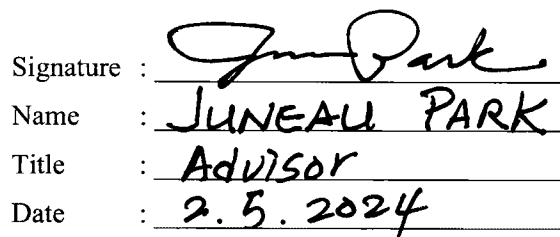 Signature : Jun Park
Name : JUNEAU PARK
Title : Advisor
Date : 2.5.2024